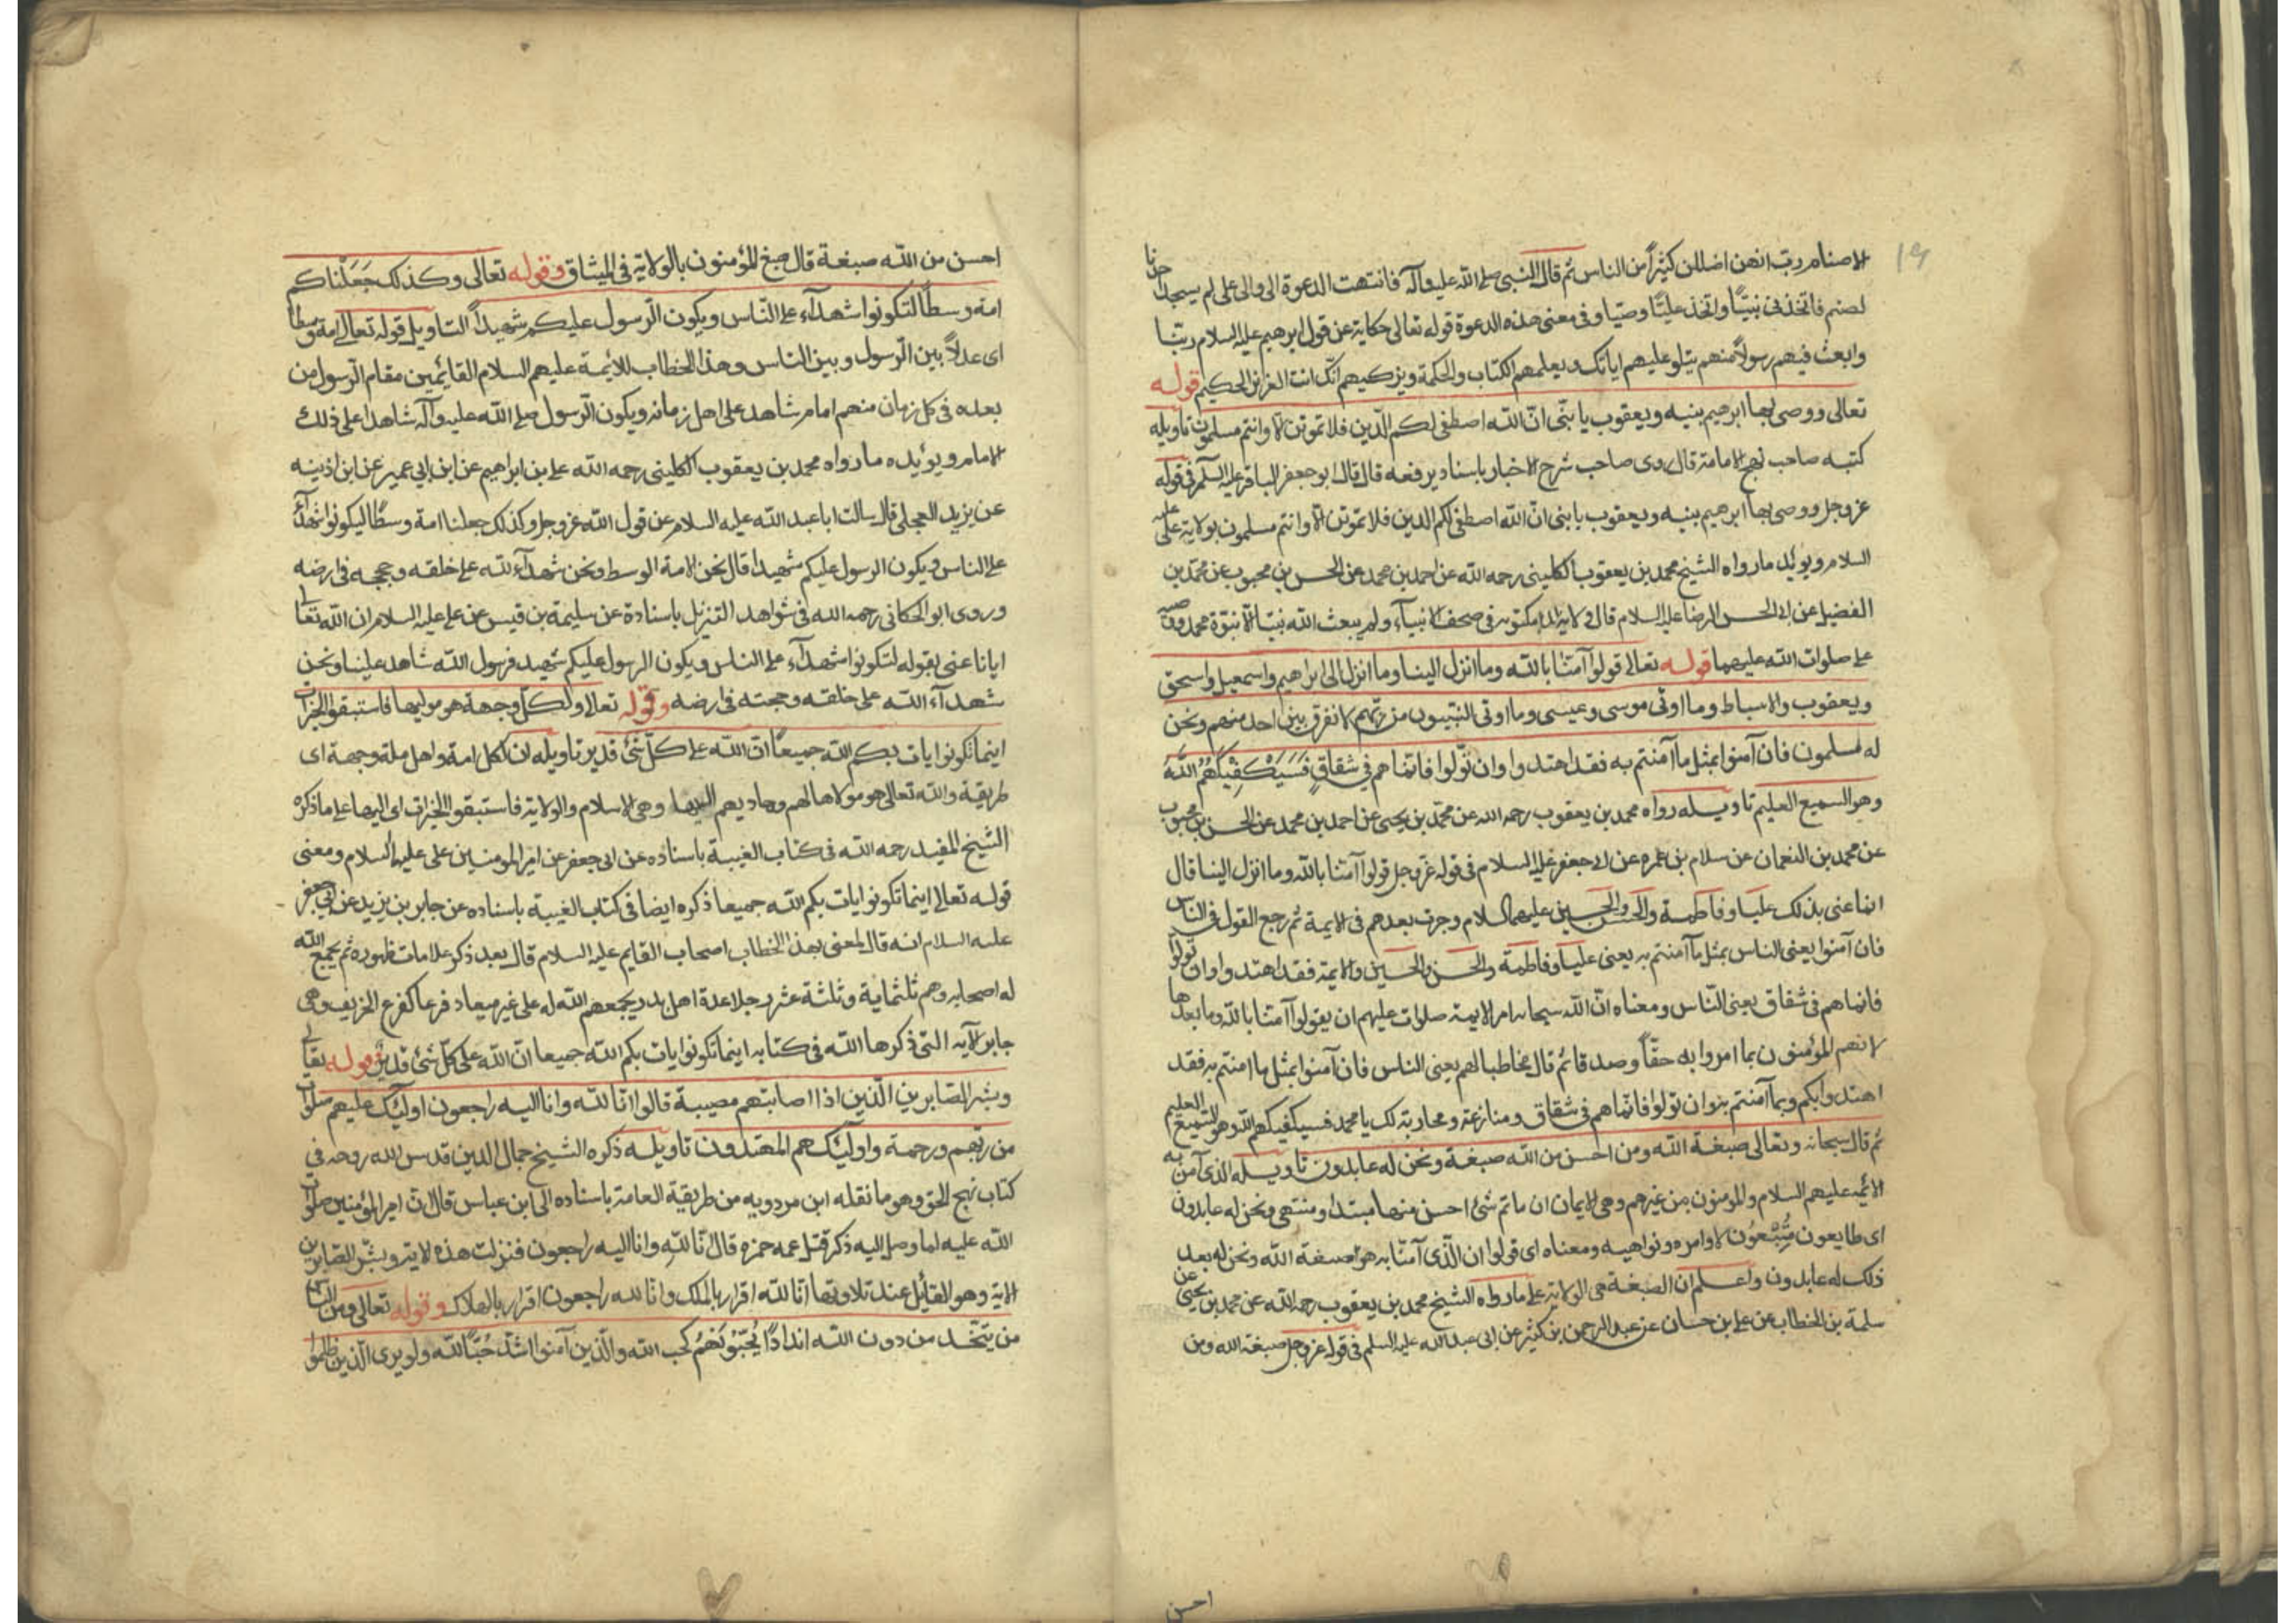 ١٩
الاصنام رب انهن اضللن كثيرًا من الناس ثم قال النبي صلى الله عليه وآله فانتهت الدعوة الى والى على لم يسجد احدنا
لصنم فاتخذنى نبيًا واتخذ عليًا وصيا وفى معنى هذه الدعوة قوله تعالى حكاية عن قول ابرهيم عليه السلام ربنا
وابعث فيهم رسولاً منهم يتلو عليهم اياتك ويعلمهم الكتاب والحكمة ويزكيهم انّك انت العزيز الحكيم قوله
تعالى ووصى بها ابرهيم بنيه ويعقوب يا بنّى انّ الله اصطفى لكم الدّين فلا تموتن الا وانتم مسلمون تأويله
كتبه صاحب نهج الامامة قال روى صاحب شرح الاخبار باسناد يرفعه قال قال ابو جعفر الباقر عليه السلم فى قوله
عز وجل ووصى بها ابرهيم بنيه ويعقوب يا بنى انّ الله اصطفى لكم الدين فلا تموتن الّا وانتم مسلمون بولاية على عليه
السلام ويؤيد ما رواه الشيخ محمد بن يعقوب الكلينى رحمه الله عن احمد بن محمد عن الحسن بن محبوب عن محمد بن
الفضيل عن ابى الحسن الرضا عليه السلام قال ولاية مكتوبة فى صحف الانبياء ولم يبعث الله نبيّا الّا بنبوّة محمد ووصيه
على صلوات الله عليهما قوله تعالى قولوا آمنّا بالله وما انزل الينا وما انزل الى ابراهيم واسمعيل واسحق
ويعقوب والاسباط وما اوتى موسى وعيسى وما اوتى النبيّون من ربّهم لا نفرق بين احد منهم ونحن
له مسلمون فان آمنوا بمثل ما آمنتم به فقد اهتدوا وان تولّوا فانما هم فى شقاقٍ فَسَيَكْفِيْكَهُمُ اللهُ
وهو السميع العليم تاويله رواه محمد بن يعقوب رحمه الله عن محمّد بن يحيى عن احمد بن محمد عن الحسن بن محبوب
عن محمد بن النعمان عن سلام بن عمره عن ابى جعفر عليه السلام فى قوله عزّ وجل قولوا آمنّا بالله وما انزل الينا قال
انما عنى بذلك عليا وفاطمة والحسن والحسين عليهم السلام وجرت بعدهم فى الايمة ثم رجع القول فى الناس
فان آمنوا يعنى الناس بمثل ما آمنتم به يعنى عليا وفاطمة والحسن والحسين والايمة فقد اهتدوا وان تولّوا
فانما هم فى شقاق يعنى النّاس ومعناه انّ الله سبحانه امر الايمة صلوات عليهم ان يقولوا آمنّا بالله وما بعدها
لانهم المؤمنون بما امروا به حقّاً وصدقا ثم قال مخاطبا لهم يعنى الناس فان آمنوا بمثل ما امنتم به فقد
اهتدوا بكم وبما آمنتم به وان تولوا فانّما هم فى شقاق ومنازعة ومحاربة لك يا محمد فسيكفيكهم الله وهو السميع العليم
ثم قال سبحانه وتعالى صبغة الله ومن احسن من الله صبغة ونحن له عابدون تاويله الذى آمن به
الائمه عليهم السلام والمؤمنون من غيرهم وهى الايمان ان ما ثم شئ احسن منها مبتدا ومنتهى ونحن له عابدون
اى طايعون مُتَّبِعُون لاوامره ونواهيه ومعناه اى قولوا ان الّذى آمنّا به هو صبغة الله ونحن له بعد
ذلك له عابدون واعلم ان الصبغة هى الولاية على ما رواه الشيخ محمد بن يعقوب رحمه الله عن محمد بن يحيى عن
سلمة بن الخطاب عن على بن حسان عن عبد الرحمن بن كثير عن ابى عبد الله عليه السلم فى قوله عز وجل صبغة الله ومن
احسن
احسن من الله صبغة قال صبغ المؤمنون بالولاية فى الميثاق وقوله تعالى وكذلك جَعَلْناكم
امة وسطًا لتكونوا شهدآء على النّاس ويكون الرّسول عليكم شهيداً التاويل قوله تعالى امة وسطا
اى عدلاً بين الرّسول وبين الناس وهذا الخطاب للائيمة عليهم السلام القائيمين مقام الرّسول من
بعده فى كل زمان منهم امام شاهد على اهل زمانه ويكون الرّسول صلى الله عليه وآله شاهدا على ذلك
الامام ويؤيده ما رواه محمد بن يعقوب الكلينى رحمه الله على بن ابراهيم عن ابن ابي عمير عن ابن اذينه
عن يزيد العجلى قال سالت ابا عبد الله عليه السلام عن قول الله عز وجل وكذلك جعلنا امة وسطًا ليكونوا شهدآء
على الناس ويكون الرسول عليكم شهيدا قال نحن الامة الوسط ونحن شهدآء لله على خلقه وحججه فى ارضه
وروى ابو الحكانى رحمه الله فى شواهد التنزيل باسناده عن سليمة بن قيس عن على عليه السلام ان الله تعالى
ايانا عنى بقوله لتكونوا شهدآء على الناس ويكون الرسول عليكم شهيد فرسول الله شاهد علينا ونحن
شهدآء الله على خلقه وحجته فى ارضه وقوله تعالى ولكلّ وجهة هو موليها فاستبقوا الخيرات
اينما تكونوا يات بكم الله جميعاً انّ الله على كلّ شئ قدير تاويله ان لكل امة واهل ملة وجهة اى
طريقة والله تعالى هو مولاها لهم وهاديهم اليها وهى الاسلام والولاية فاستبقوا الخيرات اى اليها على ما ذكره
الشيخ المفيد رحمه الله فى كتاب الغيبة باسناده عن ابى جعفر عن امير المومنين على عليه السلام ومعنى
قوله تعالى اينما تكونوا يات بكم الله جميعا ذكره ايضا فى كتاب الغيبة باسناده عن جابر بن يزيد عن ابى جعفر
عليه السلام انه قال المعنى بهذا الخطاب اصحاب القايم عليه السلام قال بعد ذكر علامات ظهوره ثم يجمع الله
له اصحابه وهم ثلثماية وثلثة عشر رجلا عدة اهل بدر يجمعهم الله له على غير ميعاد فرعا كفرع الخريف وهى
جابر الآيه التى ذكرها الله فى كتابه اينما تكونوا يات بكم الله جميعا انّ الله على كلّ شئ قدير وقوله تعالى
وبشر الصّابرين الّذين اذا اصابتهم مصيبة قالوا انّا لله وانا اليه راجعون اوليك عليهم صلوات
من ربّهم ورحمة واوليك هم المهتدون تاويله ذكره الشيخ جمال الدين قدس الله روحه فى
كتاب نهج الحق وهو ما نقله ابن مردويه من طريقة العامة باسناده الى ابن عباس قال انّ امير المؤمنين صلوات
الله عليه لما وصل اليه ذكر قتل عمه حمزه قال انّا للّهِ وانا اليه راجعون فنزلت هذه الاية وبشّر الصّابرين
الاية وهو القايل عند تلاوتها انّا لله اقرار بالملك وانا لله راجعون اقرار بالهلاك وقوله تعالى ومن النّاس
من يتّخد من دون الله اندادًا يُحبّوُنَهُمْ كحب الله والّذين آمنوا اشدّ حُبّا لله ولو يرى الّذين ظلموا